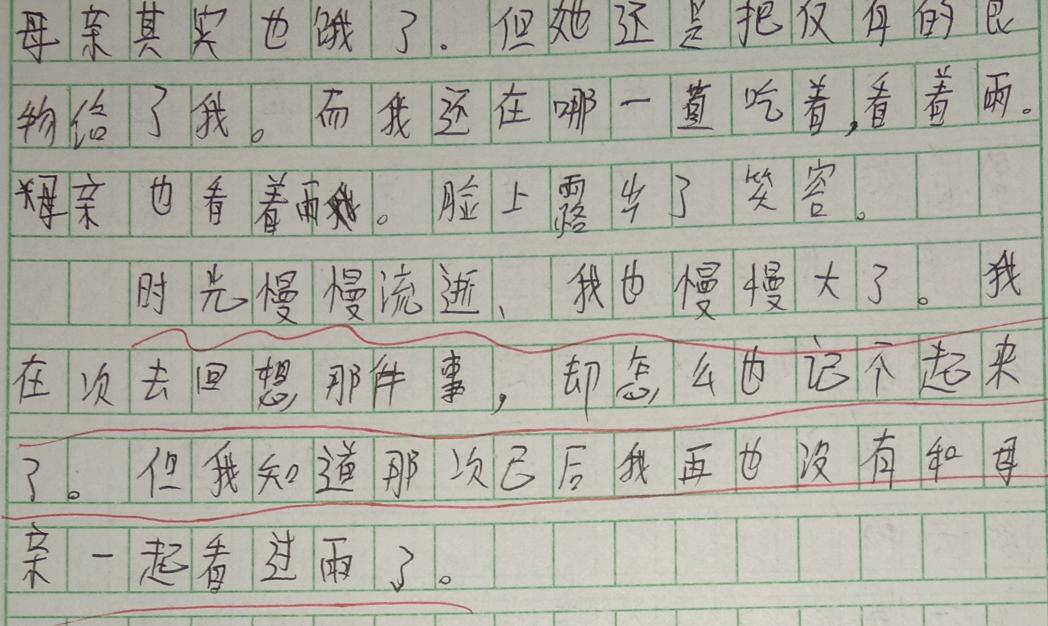 母亲其实也饿了。但她还是把仅有的食
物给了我。而我还在哪一直吃着,看着雨。
母亲也看着雨。脸上露出了笑容。
时光慢慢流逝、我也慢慢大了。我
在次去回想那件事,却怎么也记不起来
了。但我知道那次己后我再也没有和母
亲一起看过雨了。